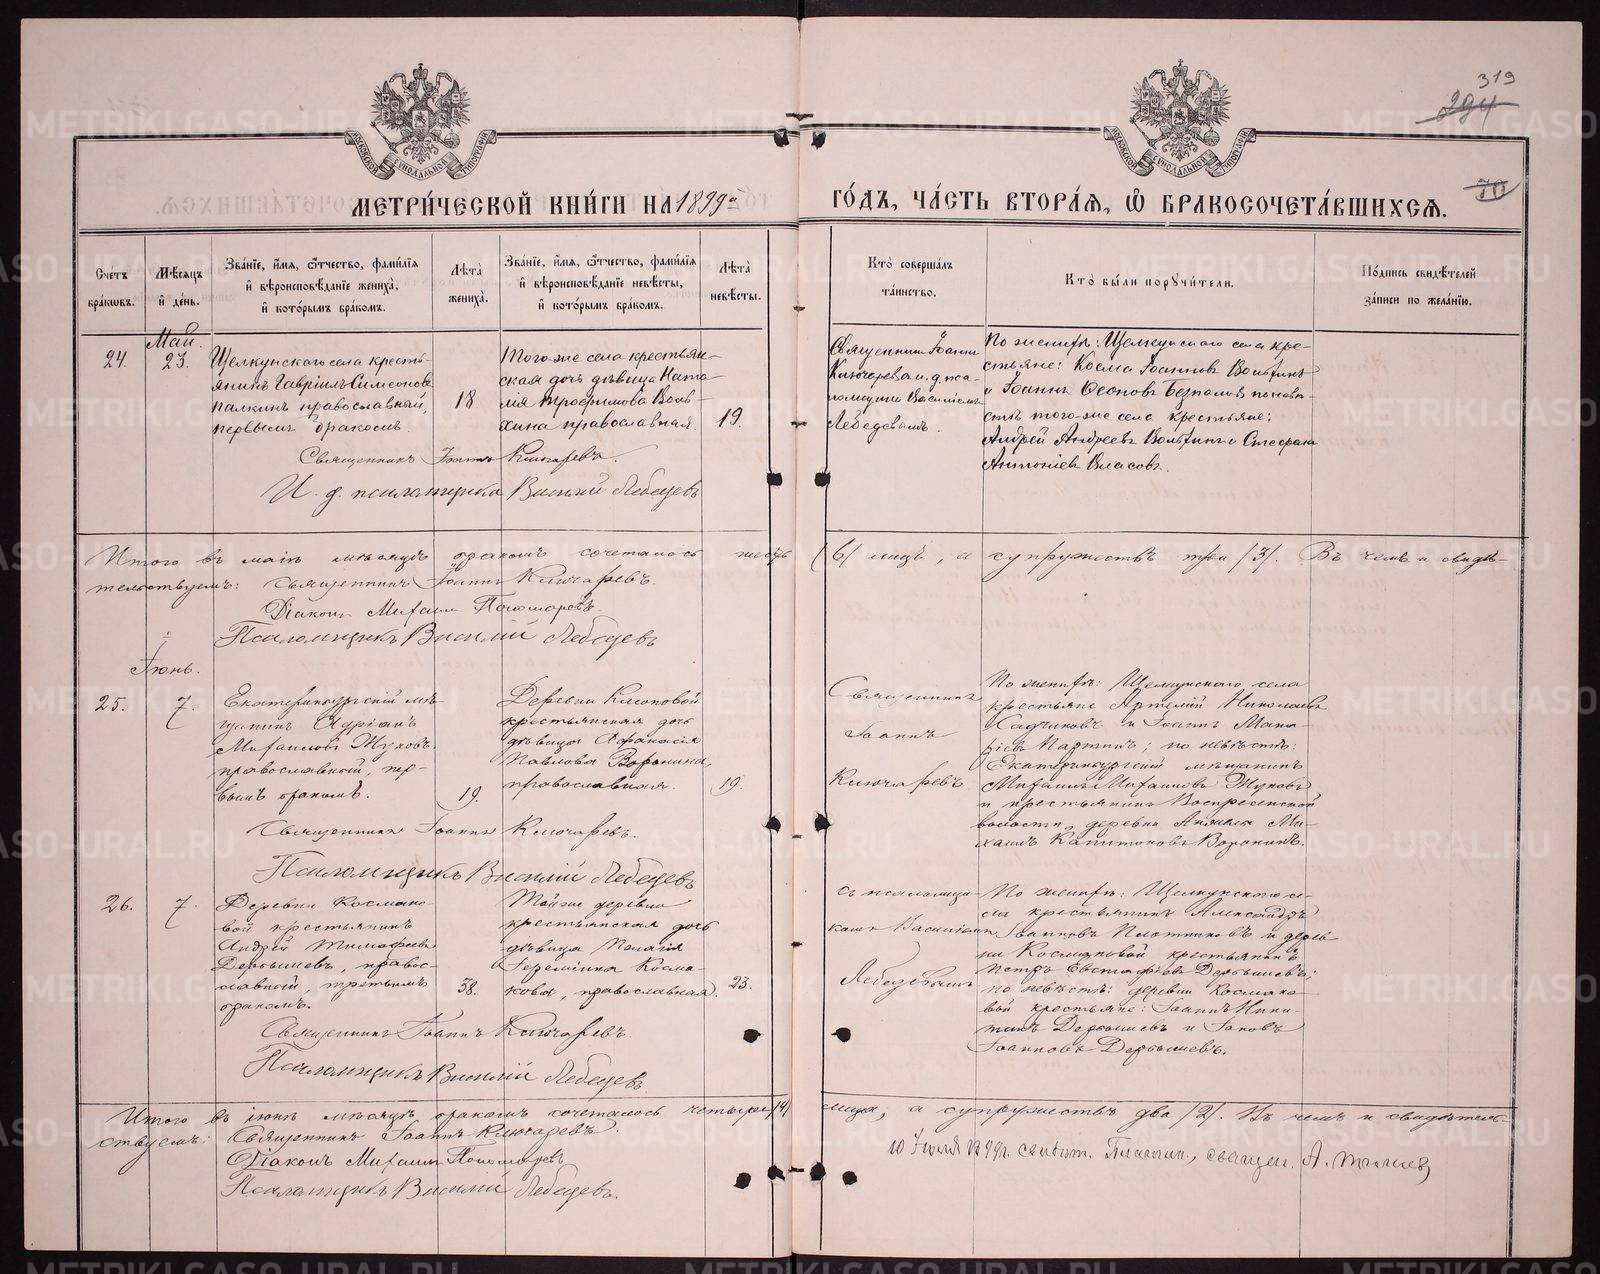 319
294
70
МОСКОВСКОЙ СѴНОДАЛЬНОЙ ТИПОГРАФІИ
МОСКОВСКОЙ СѴНОДАЛЬНОЙ ТИПОГРАФІИ
МЕТРИ́ЧЕСКОЙ КНИ́ГИ НА 1899й
ГО́ДЪ, ЧА́СТЬ ВТОРА́Ѧ, Ѽ БРАКОСОЧЕТА́ВШИХСѦ.
Счетъ бра́кѡвъ.
Мѣ́сѧцъ и҆ де́нь.
Зва́нїе, и҆́мѧ, ѻ҆́тчество, фами́лїѧ
и҆ вѣроисповѣ́данїе жениха̀,
и҆ кото́рымъ бра́комъ.
Лѣ́та̀ жениха̀.
Зва́нїе, и҆́мѧ, ѻ҆́тчество, фами́лїѧ
и҆ вѣроисповѣ́данїе невѣ́сты,
и҆ кото́рымъ бра́комъ.
Лѣ́та̀ невѣ́сты.
Кто̀ соверша́лъ
та́инство.
Кто̀ бы́ли порꙋчи́тели.
По́дпись свидѣ́телей
за́писи по жела́нїю.
Май.
24. 23.
Щелкунскаго села кресть-
янинъ Гавріилъ Симеоновъ
Палкинъ православный,
первымъ бракомъ.
18.
Того-же села крестьян-
ская дочь дѣвица Ната-
лія Трофимова Воль-
хина православная
19.
Священникъ Іоаннъ
Ключаревъ и. д. пса-
ломщика Василіемъ
Лебедевымъ.
По женихѣ: Щелкунскаго села кре-
стьяне: Косма Іоанновъ Вольхинъ
и Іоаннъ Леоновъ Безпаловъ по невѣ-
стѣ того-же села крестьяне:
Андрей Андреевъ Вольхинъ и Стефанъ
Антоніевъ Власовъ.
Священникъ Іоаннъ Ключаревъ.
И. д. псаломщика Василій Лебедевъ
Итого въ маѣ мѣсяцѣ бракомъ сочеталось шесть (6) лицъ, а супружествъ три (3). Въ чемъ и свидѣ-
тельствуемъ: Священникъ Іоаннъ Ключаревъ.
Діаконъ Михаилъ Пономаревъ.
Псаломщикъ Василій Лебедевъ
Іюнь.
25. 7.
Екатеринбургскій мѣ-
щанинъ Адріанъ
Михаиловъ Жуковъ.
православный, пер-
вымъ бракомъ.
19.
Деревни Ключовой
крестьянская дочь
дѣвица Афанасія
Павлова Воронина,
православная.
19.
Священникъ
Іоаннъ
Ключаревъ
По женихѣ: Щелкунскаго села
крестьяне Артемій Николаевъ
и Іоаннъ Мака-
ріевъ Партинъ; по невѣстѣ:
Екатеринбургскій мѣщанинъ
Михаилъ Михаиловъ Жуковъ
и крестьянинъ Воскресенской
волости, деревни Ми-
хаилъ Капитоновъ Воронинъ.
Священникъ Іоаннъ Ключаревъ.
Псаломщикъ Василій Лебедевъ
26. 7.
Деревни Космако-
вой крестьянинъ
Андрей Тимофеевъ
Дербышевъ, правос-
лавный, третьимъ
бракомъ.
38.
Той-же деревни
крестьянская дочь
дѣвица Пелагія
Іереміина Косма-
кова, православная.
23.
съ псаломщи-
комъ Василіемъ
Лебедевымъ
По женихѣ: Щелкунскаго се-
ла крестьянинъ Александръ
Іоанновъ Плотниковъ и дерев-
ни Космаковой крестьянинъ
Петръ Евстафьевъ Дербышевъ;
по невѣстѣ: деревни Космако-
вой крестьяне: Іоаннъ Ники-
тинъ Дербышевъ и Іаковъ
Іоанновъ Дербышевъ.
Священникъ Іоаннъ Ключаревъ.
Псаломщикъ Василій Лебедевъ
Итого въ іюнѣ мѣсяцѣ бракомъ сочеталось четыре (4) лица, а супружествъ два (2). Въ чемъ и свидѣтель-
ствуемъ: Священникъ Іоаннъ Ключаревъ.
Діаконъ Михаилъ Пономаревъ
Псаломщикъ Василій Лебедевъ.
10 Іюля 1899 г. священ. А.
METRIKI.GASO-URAL.RU